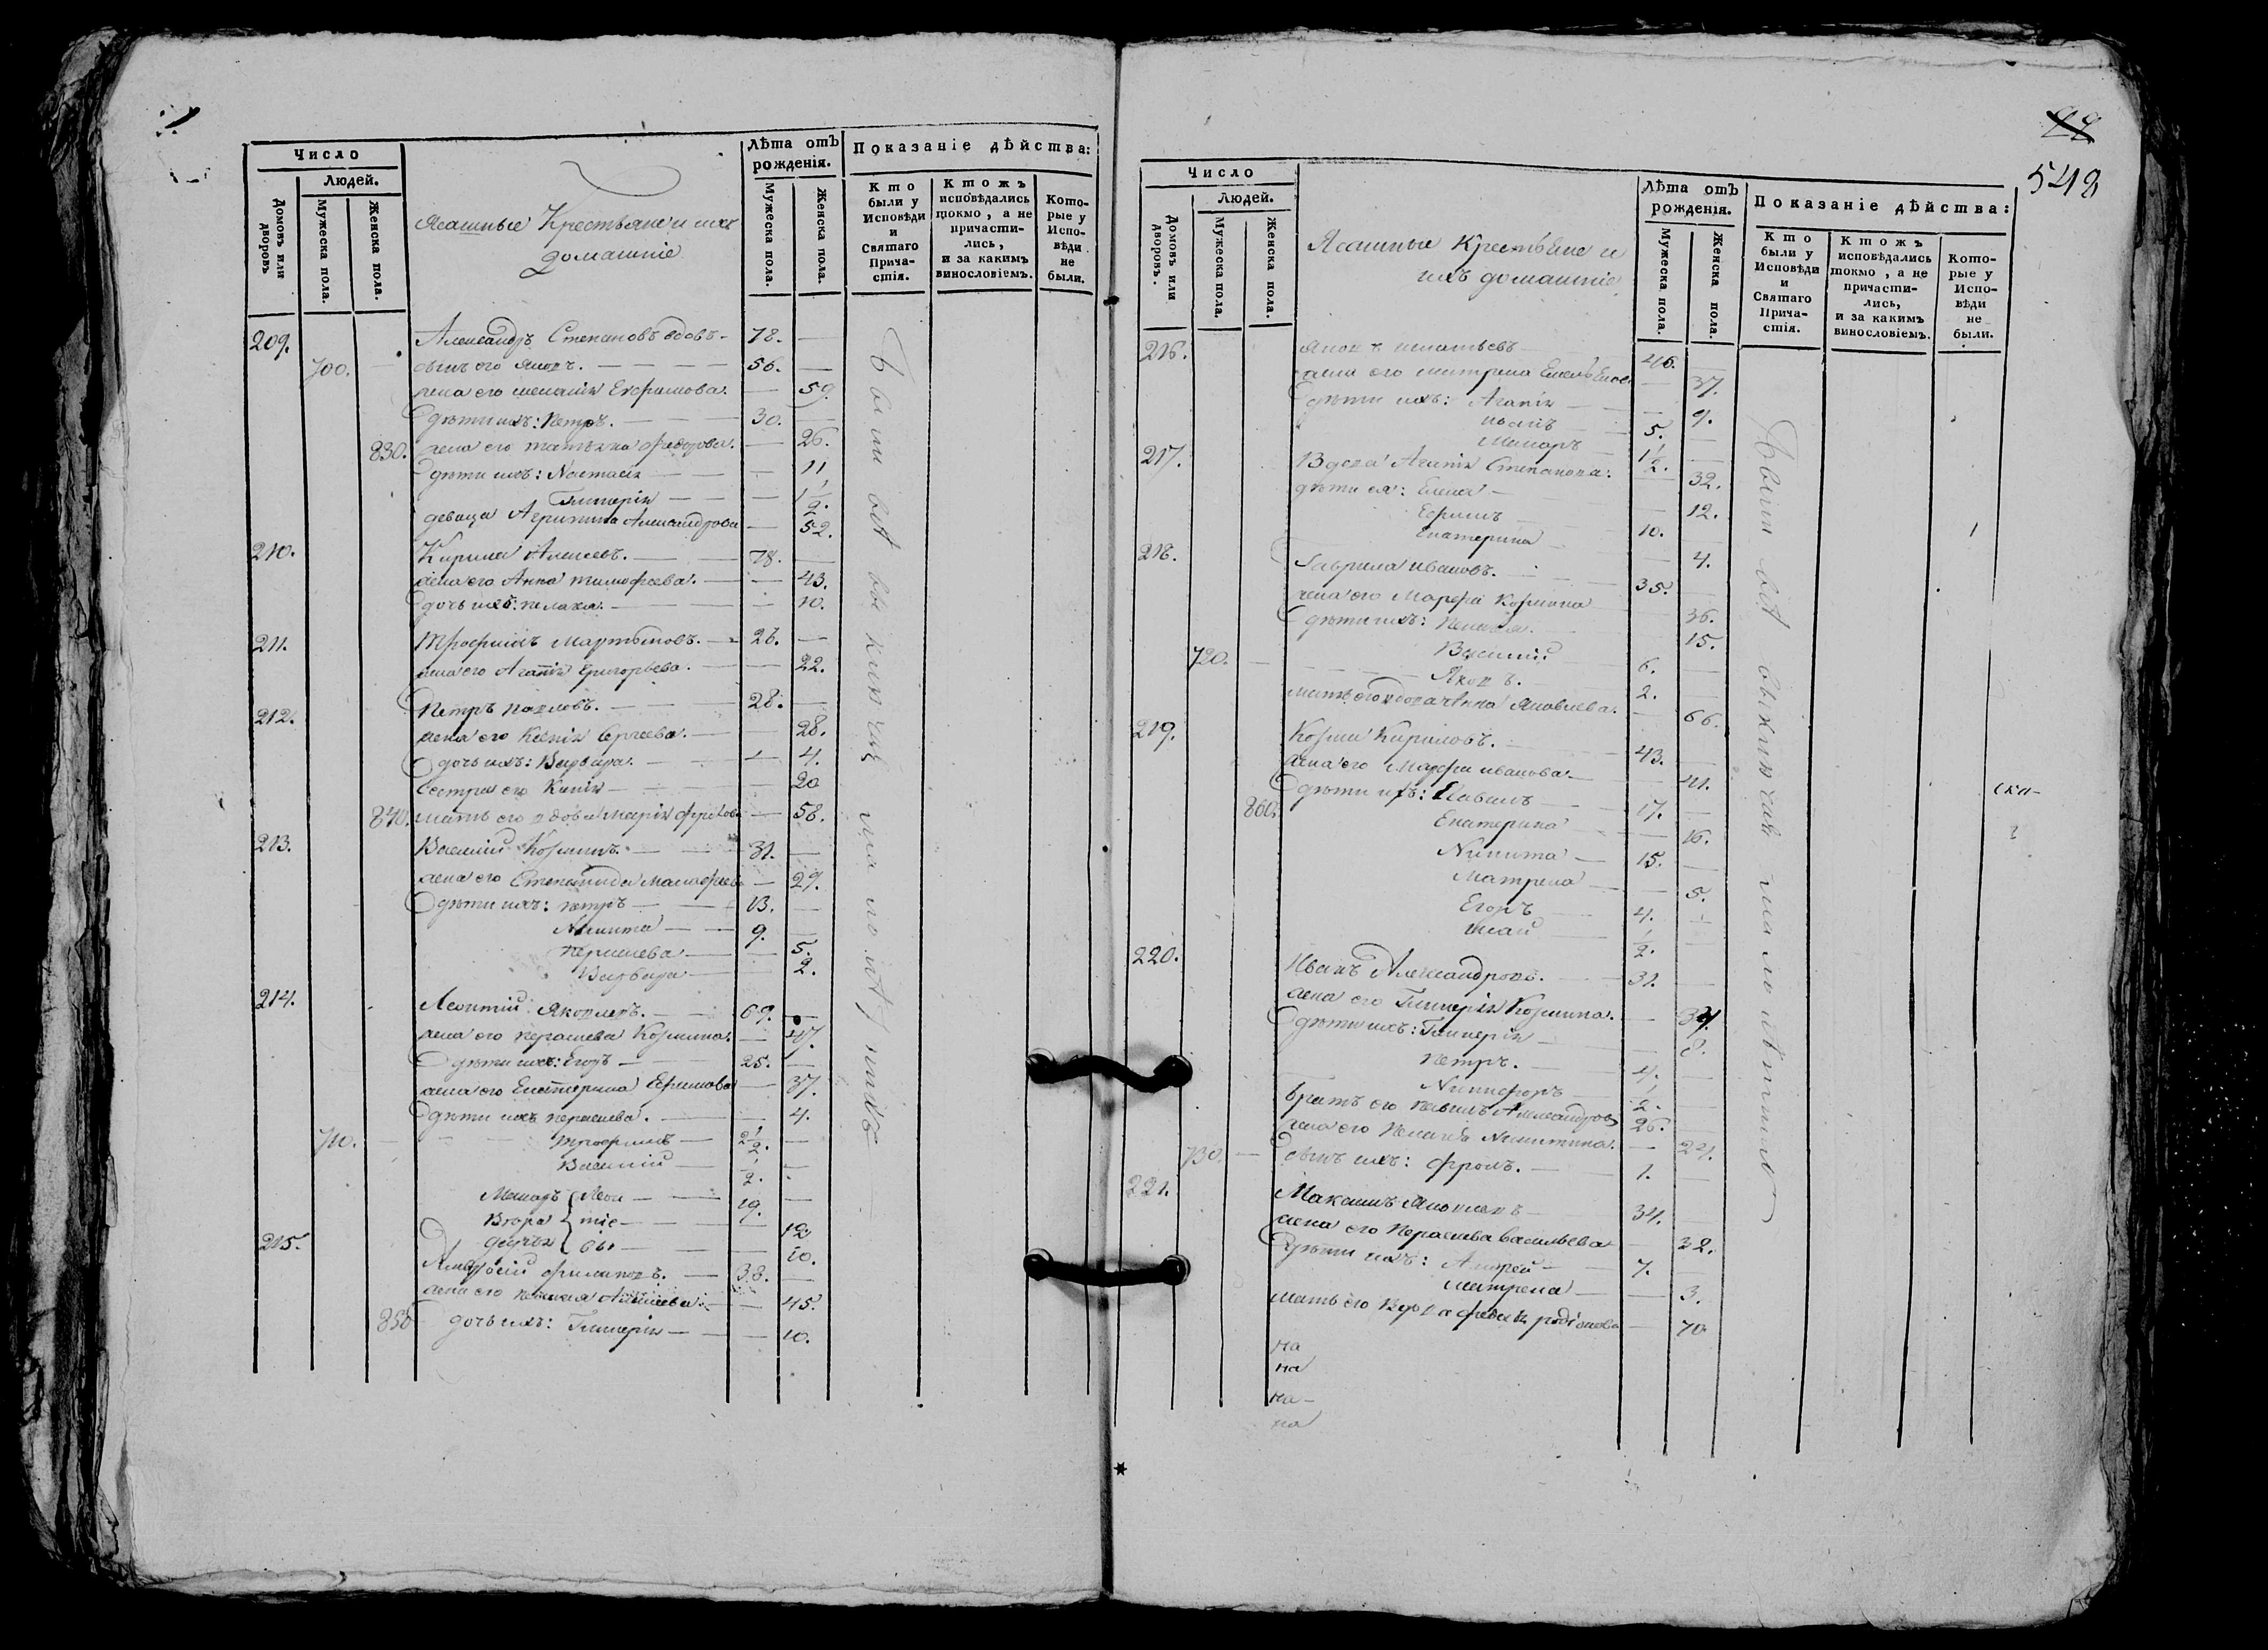 Число
Людей.
Домовъ или дворовъ
Мужеска пола.
Женска пола.
Ясашные Крестьяне и ихъ
домашнiе
Лѣта отъ рожденія.
Мужеска пола.
Женска пола.
Показаніе дѣйства:
Кто были у Исповѣди и Святаго Прича-стія.
Ктожъ исповѣдались токмо, а не причасти-лись, и за какимъ винословіемъ.
Кото-рые у Испо-вѣди не были.
209. Александръ Степановъ вдовъ - 78. —
700. сынъ его Яковъ. — 56. —
жена его Евфимова. — 59.
дѣти ихъ: Петръ. — 30. —
830. жена его Татьяна Федорова. — 26.
дѣти ихъ: Настасiя — 11
Гликерiя — 1 1/2.
девица Агрипина Александрова — 52.
210. Кирила Алексеевъ. — 78. —
жена его Анна Тимофеева. — 43.
дочь ихъ: Пелагея. — 10.
211. Трофимъ Мартыновъ. — 26. —
жена его Агапiя Григорьева. — 22.
212. Петръ Павловъ. — 28. —
жена его Ксенiя Сергеева. — 28.
дочь ихъ: Варвара. — 4.
сестра его — 20
840. мать его вдова Марiя — 58.
213. Василiй Козминъ. — 31. —
жена его Степанида — 29.
дѣти ихъ: Петръ — 13. —
Никита — 9. —
Парасковья — 5.
Варвара — 2.
214. Леонтiй Яковлевъ. — 69. —
жена его Козмина. — 47.
дѣти ихъ: Егоръ — 25. —
жена его Екатерина Ефимова — 37.
дѣти ихъ — 4.
710. Трофимъ — 2 1/2. —
Василiй — 1/2. —
19. —
12
10.
215. Амвросiй Филиповъ. — 38. —
жена его — 45.
850 дочь ихъ: Гликерiя — 10.
Были всѣ выключая малолѣтнихъ
548
Число
Людей.
Домовъ или дворовъ.
Мужеска пола.
Женска пола.
Ясашные Крестьяне и
ихъ домашнiе
Лѣта отъ рожденія.
Мужеска пола.
Женска пола.
Показаніе дѣйства:
Кто были у Исповѣди и Святаго Прича-стія.
Ктожъ исповѣдались токмо, а не причасти-лись, и за какимъ винословіемъ.
Кото-рые у Испо-вѣди не были.
216. Яковъ Игнатьевъ — 46. —
жена его Матрена — 37.
дѣти ихъ: Агапiя — 9.
5. —
Макаръ — 1 1/2. —
217. Вдова Агапiя Степанова. — 32.
дѣти ея: Елена — 12.
Ефимъ — 10.
Екатерина — 4.
218. Гаврила Ивановъ. — 35.
жена его Марфа Козмина — 36.
дѣти ихъ: Пелагея. — 15.
720. Василiй — 6. —
Яковъ. — 2. —
мать его вдова Анна Яковлева. — 66.
219. Козма Кириловъ. — 43. —
жена его Марфа Иванова. — 41.
дѣти ихъ: — 17. —
860. Екатерина — 16.
Никита — 15. —
Матрена — 5.
Егоръ — 4. —
1/2. —
220. Иванъ Александровъ. — 31. —
жена его Гликерiя Козмина. — 34.
дѣти ихъ: Гликерiя — 8.
Петръ. — 4. —
Никифоръ — 1/2. —
братъ его Александровъ 26. —
жена его Пелагея Никитина. — 24.
730. сынъ ихъ: Фролъ. — 1. —
221. Максимъ Яковлевъ — 34. —
жена его Васильева — 32.
дѣти ихъ: Андрей — 7. —
Матрена — 3.
мать его вдова Родiонова — 70
на
на
на
на
Были всѣ выключая малолѣтнихъ